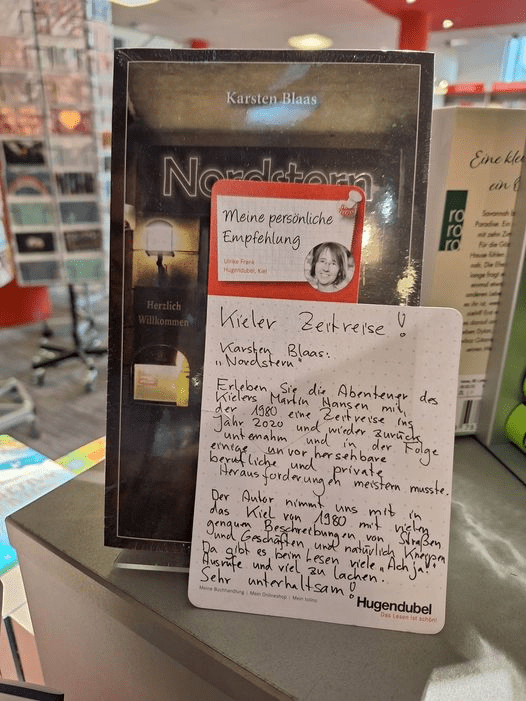 Karsten Blaas
Nordstern
Herzlich
Willkommen
Meine persönliche
Empfehlung
Ulrike Frenk
Hugendubel, Kiel
Kieler Zeitreise!
Karsten Blaas:
„Nordstern"
Erleben Sie die Abenteuer des
Kielers Martin Hansen mit,
der 1980 eine Zeitreise ins
Jahr 2020 und wieder zurück
unternahm und in der Folge
einige unvorhersehbare
berufliche und private
Herausforderungen meistern musste.
Der Autor nimmt uns mit in
das Kiel von 1980 mit vielen
genauen Beschreibungen von Straßen
und Geschäften und natürlich Kneipen.
Da gibt es beim Lesen viele „Ach ja"
Ausrufe und viel zu lachen.
Sehr unterhaltsam!
Meine Buchhandlung | Mein Onlineshop | Mein tolino
Hugendubel
Das Lesen ist schön!
Eine kle
ein
Savannah
Paradise. Ein
mit zehn Zim
Für die
Hause fühlen
ro
ro
ro